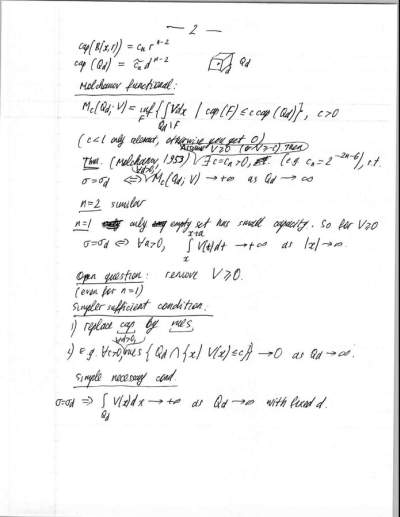 — 2 —
cap(B(x,r)) = cₙ rⁿ⁻²
cap(Q_d) = c̃ₙ dⁿ⁻² Q_d
d
Molchanov functional:
M_c(Q_d; V) = inf_F { ∫_{Q_d\F} V dx | cap(F) ≤ c cap(Q_d) }, c>0
(c<1 only relevant, otherwise you get 0)
Assume V≥0 (or V≥-c). Then
Thm. (Molchanov, 1953) ∃ c=cₙ>0, (e.g. cₙ = 2^{-2n-6}), s.t.
∀d>0,
σ=σ_d ⇔ M_c(Q_d; V) → +∞ as Q_d → ∞
n=2 similar
n=1 only empty set has small capacity. So for V≥0
σ=σ_d ⇔ ∀a>0, ∫_x^{x+a} V(t)dt → +∞ as |x|→∞.
Open question: remove V≥0.
(even for n=1)
Simpler sufficient condition.
1) replace cap by mes,
∀d>0
2) e.g. ∀c>0, mes {Q_d ∩ {x| V(x)≤c}} → 0 as Q_d → ∞.
Simple necessary cond.
σ=σ_d ⇒ ∫_{Q_d} V(x)dx → +∞ as Q_d → ∞ with fixed d.